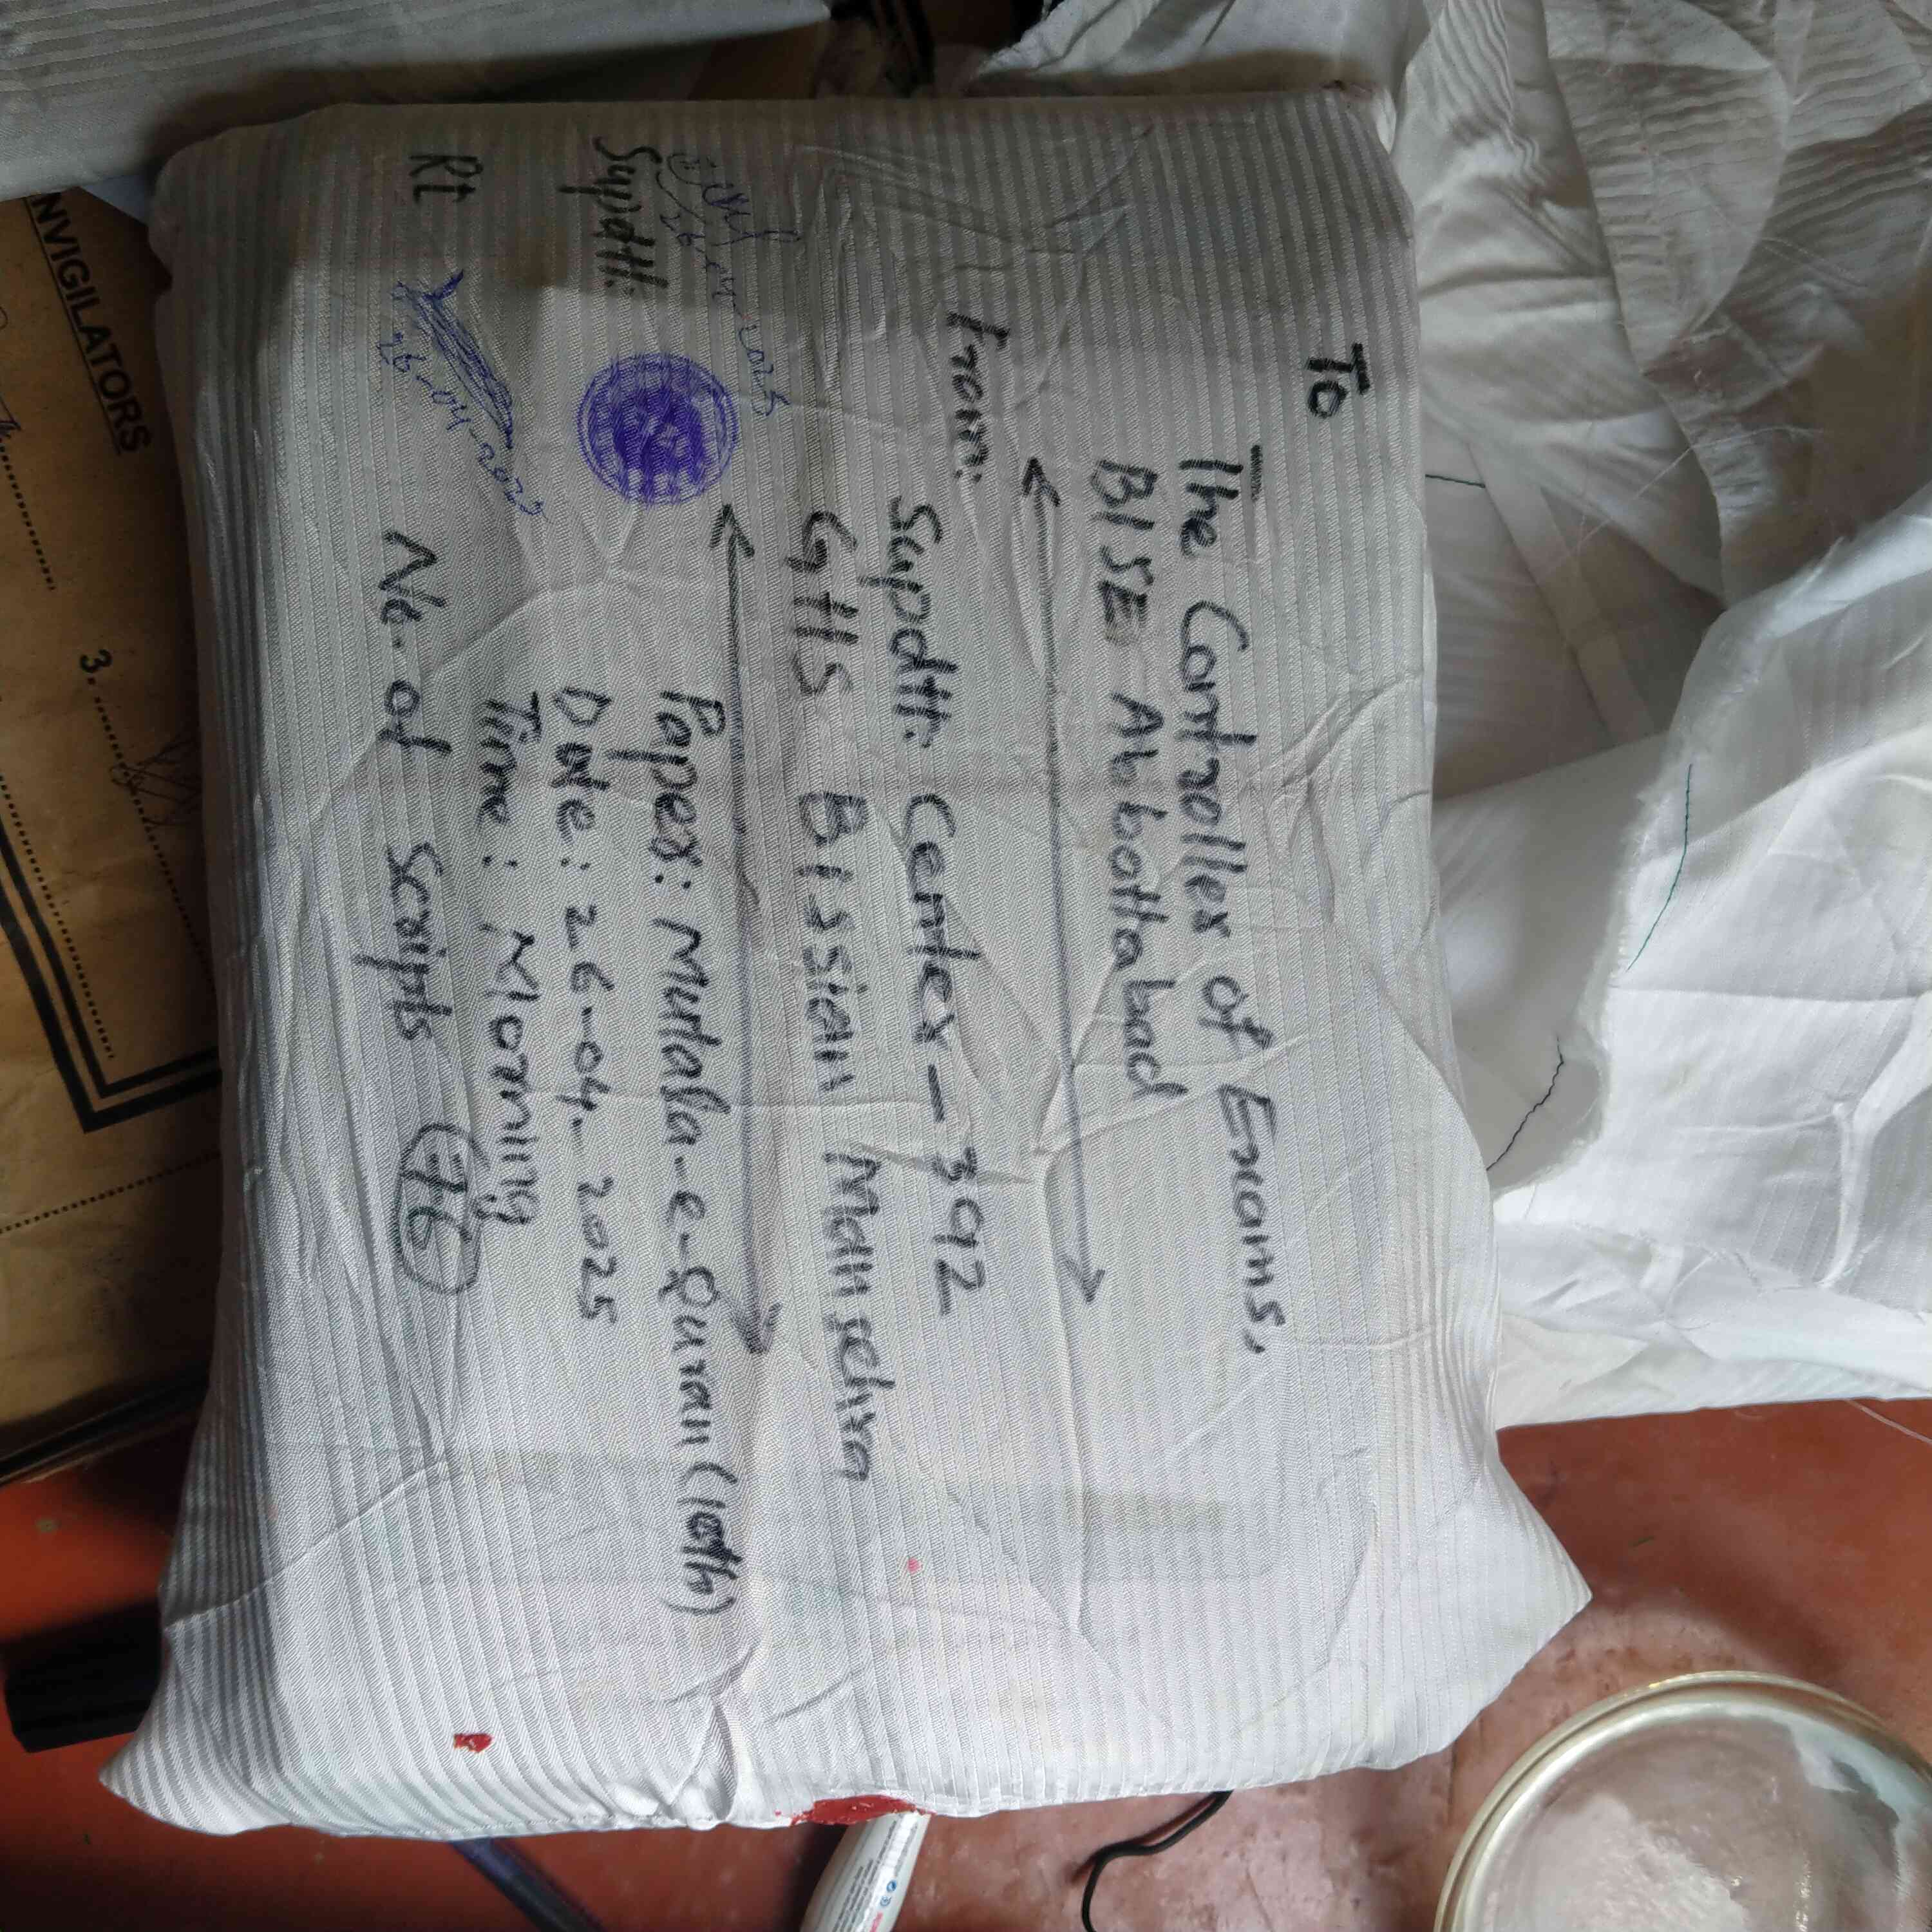 To
The Controller of Exams,
BISE Abbottabad
From:
Supdtt. Center - 392
GHS Bissian Mansehra
Paper: Mutala-e-Quran (10th)
Date: 26-04-2025
Time: Morning
No. of Scripts 76
26-04-2025
Supdtt:
Rt
26-04-2025
NVIGILATORS
3.